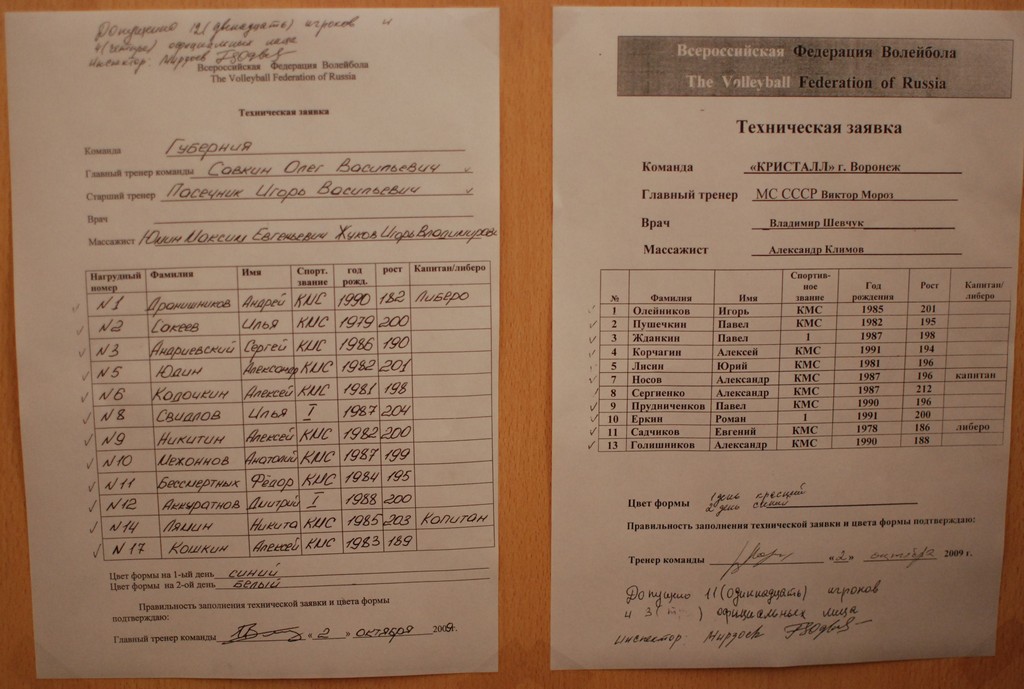 Допущено 12 (двенадцать) игроков и
4 (четыре) официальных лица
Инспектор: Мирзоев
Всероссийская Федерация Волейбола
The Volleyball Federation of Russia
Техническая заявка
Команда Губерния
Главный тренер команды Савкин Олег Васильевич
Старший тренер Пасечник Игорь Васильевич
Врач
Массажист Юшин Максим Евгеньевич Жуков Игорь Владимирович
Нагрудный номер Фамилия Имя Спорт. звание год рожд. рост Капитан/либеро
N1 Дранишников Андрей КМС 1990 182 Либеро
N2 Сакеев Илья КМС 1979 200
N3 Андриевский Сергей КМС 1986 190
N5 Юдин Александр КМС 1982 201
N6 Кадочкин Алексей КМС 1981 198
N8 Свидлов Илья I 1987 204
N9 Никитин Алексей КМС 1982 200
N10 Мехоннов Анатолий КМС 1987 199
N11 Бессмертных Фёдор КМС 1984 195
N12 Аккуратнов Дмитрий I 1988 200
N14 Лямин Никита КМС 1985 203 Капитан
N17 Кошкин Алексей КМС 1983 189
Цвет формы на 1-ый день синий
Цвет формы на 2-ой день белый
Правильность заполнения технической заявки и цвета формы
подтверждаю:
Главный тренер команды «2» октября 2009г.
Всероссийская Федерация Волейбола
The Volleyball Federation of Russia
Техническая заявка
Команда «КРИСТАЛЛ» г. Воронеж
Главный тренер МС СССР Виктор Мороз
Врач Владимир Шевчук
Массажист Александр Климов
№ Фамилия Имя Спортивное звание Год рождения Рост Капитан/либеро
1 Олейников Игорь КМС 1985 201
2 Пушечкин Павел КМС 1982 195
3 Жданкин Павел I 1987 198
4 Корчагин Алексей КМС 1991 194
5 Лисин Юрий КМС 1981 196
7 Носов Александр КМС 1987 196 капитан
8 Сергиенко Александр КМС 1987 212
9 Прудниченков Павел КМС 1990 196
10 Еркин Роман I 1991 200
11 Садчиков Евгений КМС 1978 186 либеро
13 Голишников Александр КМС 1990 188
Цвет формы 1 день красный
2 день синий
Правильность заполнения технической заявки и цвета формы подтверждаю:
Тренер команды «2» октября 2009 г.
Допущено 11 (одиннадцать) игроков
и 3 ( ) официальных лица
Инспектор: Мирзоев